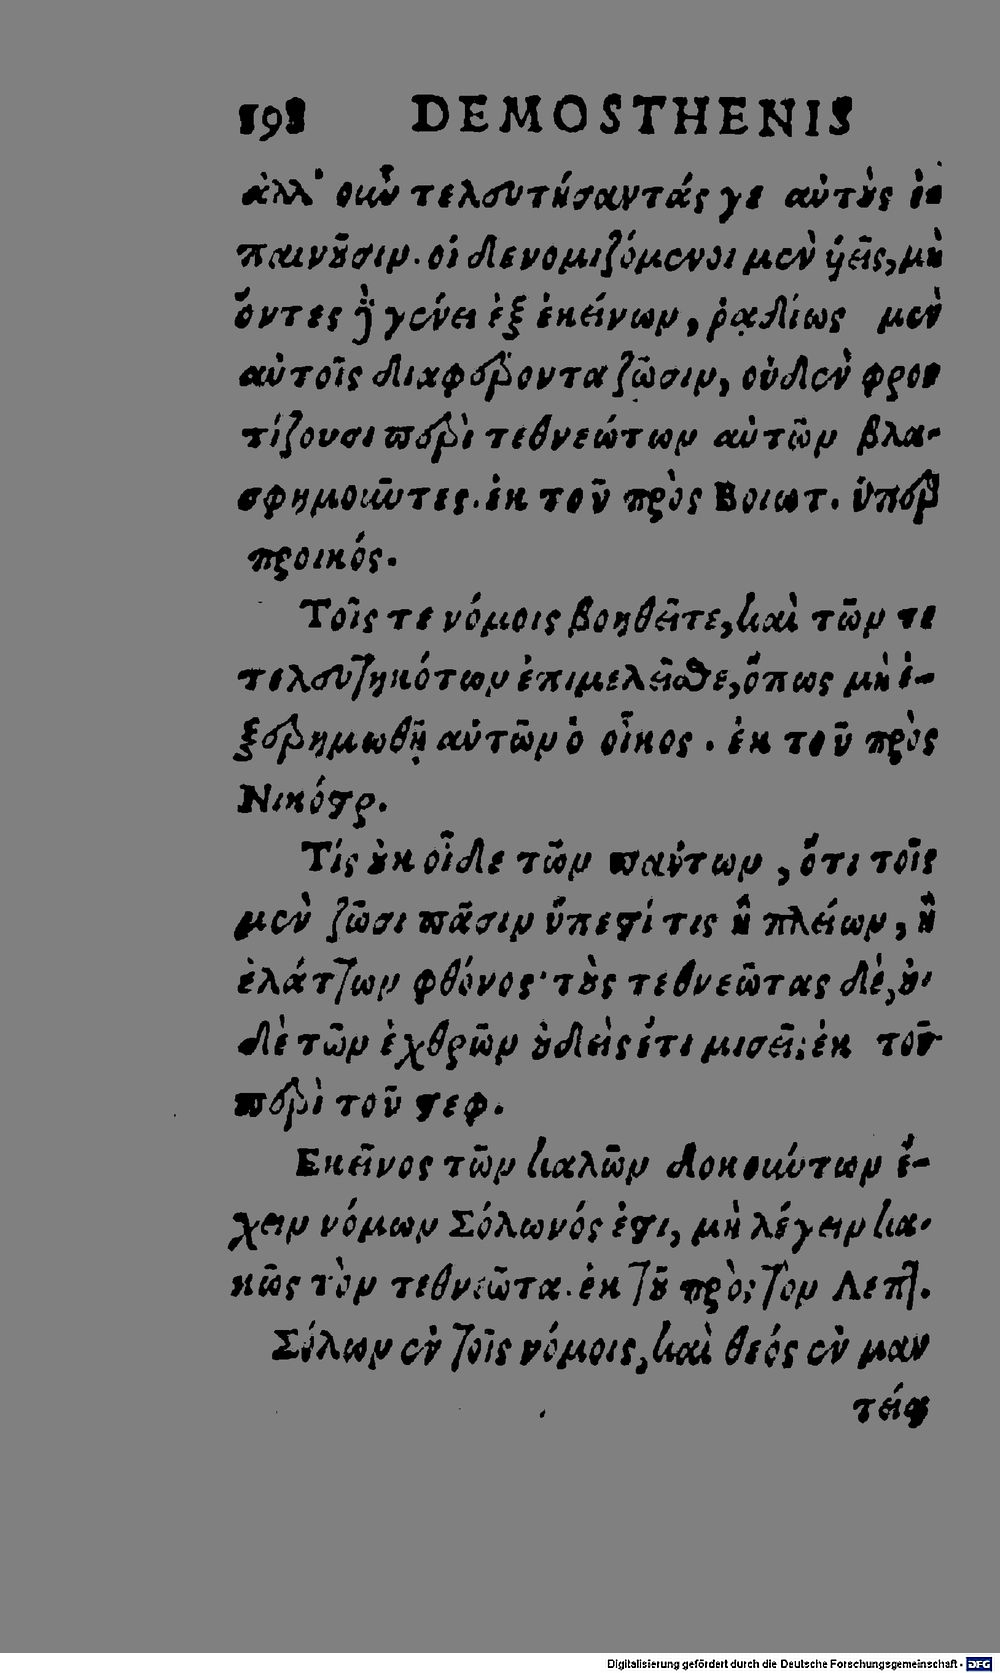 198 DEMOSTHENIS
ἀλλ' οὖν τελευτήσαντάς γε αὐτοὺς ἐ-
παινοῦσιν. οἱ δὲ νομιζόμενοι μὲν ὑεῖς, μὴ
ὄντες δὲ γένει ἐξ ἐκείνων, ῥαδίως μὲν
αὐτοῖς διαφέρονται ζῶσιν, οὐδὲν φρον
τίζουσι περὶ τεθνεώτων αὐτῶν βλα-
σφημοῦντες. ἐκ τοῦ πρὸς Βοιωτ. ὑπὲρ
προικός.
Τοῖς τε νόμοις βοηθεῖτε, καὶ τῶν τε
τελευτηκότων ἐπιμελεῖσθε, ὅπως μὴ ἐ-
ξερημωθῇ αὐτῶν ὁ οἶκος. ἐκ τοῦ πρὸς
Νικόστρ.
Τίς οὐκ οἶδε τῶν πάντων, ὅτι τοῖς
μὲν ζῶσι πᾶσιν ὕπεστί τις ἢ πλείων, ἢ
ἐλάττων φθόνος· τοὺς τεθνεῶτας δὲ, οὐ-
δὲ τῶν ἐχθρῶν οὐδεὶς ἔτι μισεῖ; ἐκ τοῦ
περὶ τοῦ στεφ.
Εκεῖνος τῶν καλῶν δοκούντων ἔ-
χειν νόμων Σόλωνός ἐστι, μὴ λέγειν κα-
κῶς τὸν τεθνεῶτα. ἐκ τοῦ πρὸς τὸν Λεπτ.
Σόλων ἐν τοῖς νόμοις, καὶ θεός ἐν μαν
τείᾳ
Digitalisierung gefördert durch die Deutsche Forschungsgemeinschaft - DFG